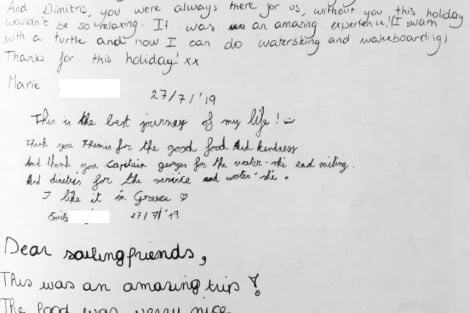 And Dimitris, you were always there for us, without you this holiday
wouldn't be so relaxing. It was an amazing experience! (I swam
with a turtle and now I can do waterskiing and wakeboarding)
Thanks for this holiday! xx
Marie
27/7/'19
This is the best journey of my life!
Thank you Themis for the good food and kindness
And thank you Captain for the water-ski and sailing.
And dimitris for the service and water-ski.
I like it in Greece ♡
Emile 27/7/'19
Dear sailingfriends,
This was an amazing trip!
The food was very nice